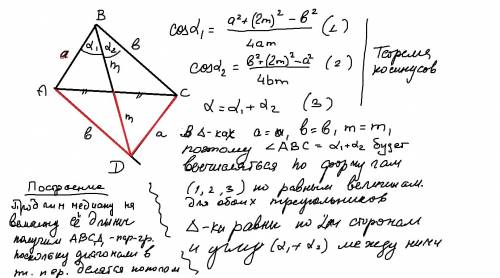 B
a
α₁
α₂
в
m
A
C
в
m
a
D
cosα₁ = a² + (2m)² − в² / 4am (1)
cosα₂ = в² + (2m)² − a² / 4вm (2)
α = α₁ + α₂ (3)
Теорема
косинусов
В Δ-ках a = a₁, в = в₁, m = m₁
поэтому ∠ABC = α₁ + α₂ будет
вычисляться по формулам
(1, 2, 3) по равным величинам.
для обоих треугольников
Δ-ки равны по 2ум сторонам
и углу (α₁ + α₂) между ними
Построение
Продлим медиану на
величину её длины
получим ABCД - пар-гр.
поскольку диагонали в
т. пер. делятся пополам